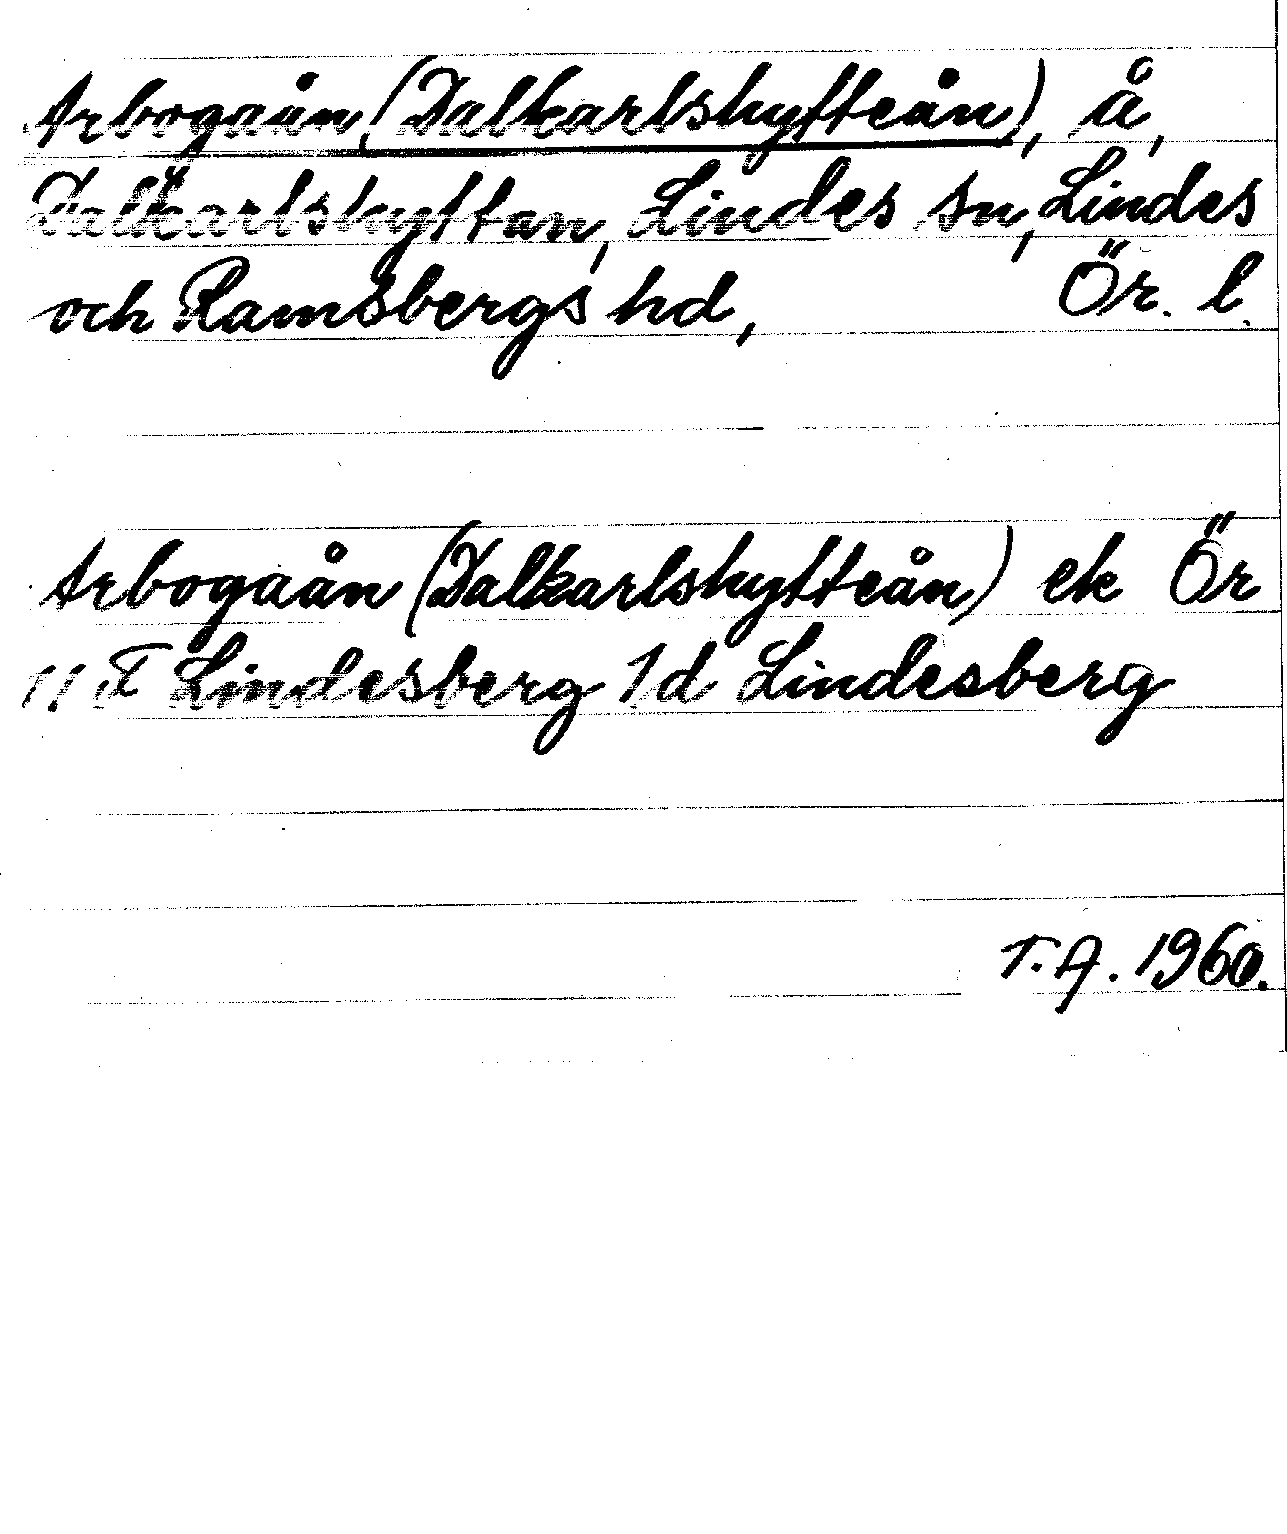 Arbogaån (Dalkarlshytteån), å,
Dalkarlshyttan, Lindes sn, Lindes
och Ramsbergs hd, Ör. l.
Arbogaån (Dalkarlshytteån) ek Ör
11 F Lindesberg 1d Lindesberg
T.A. 1960.